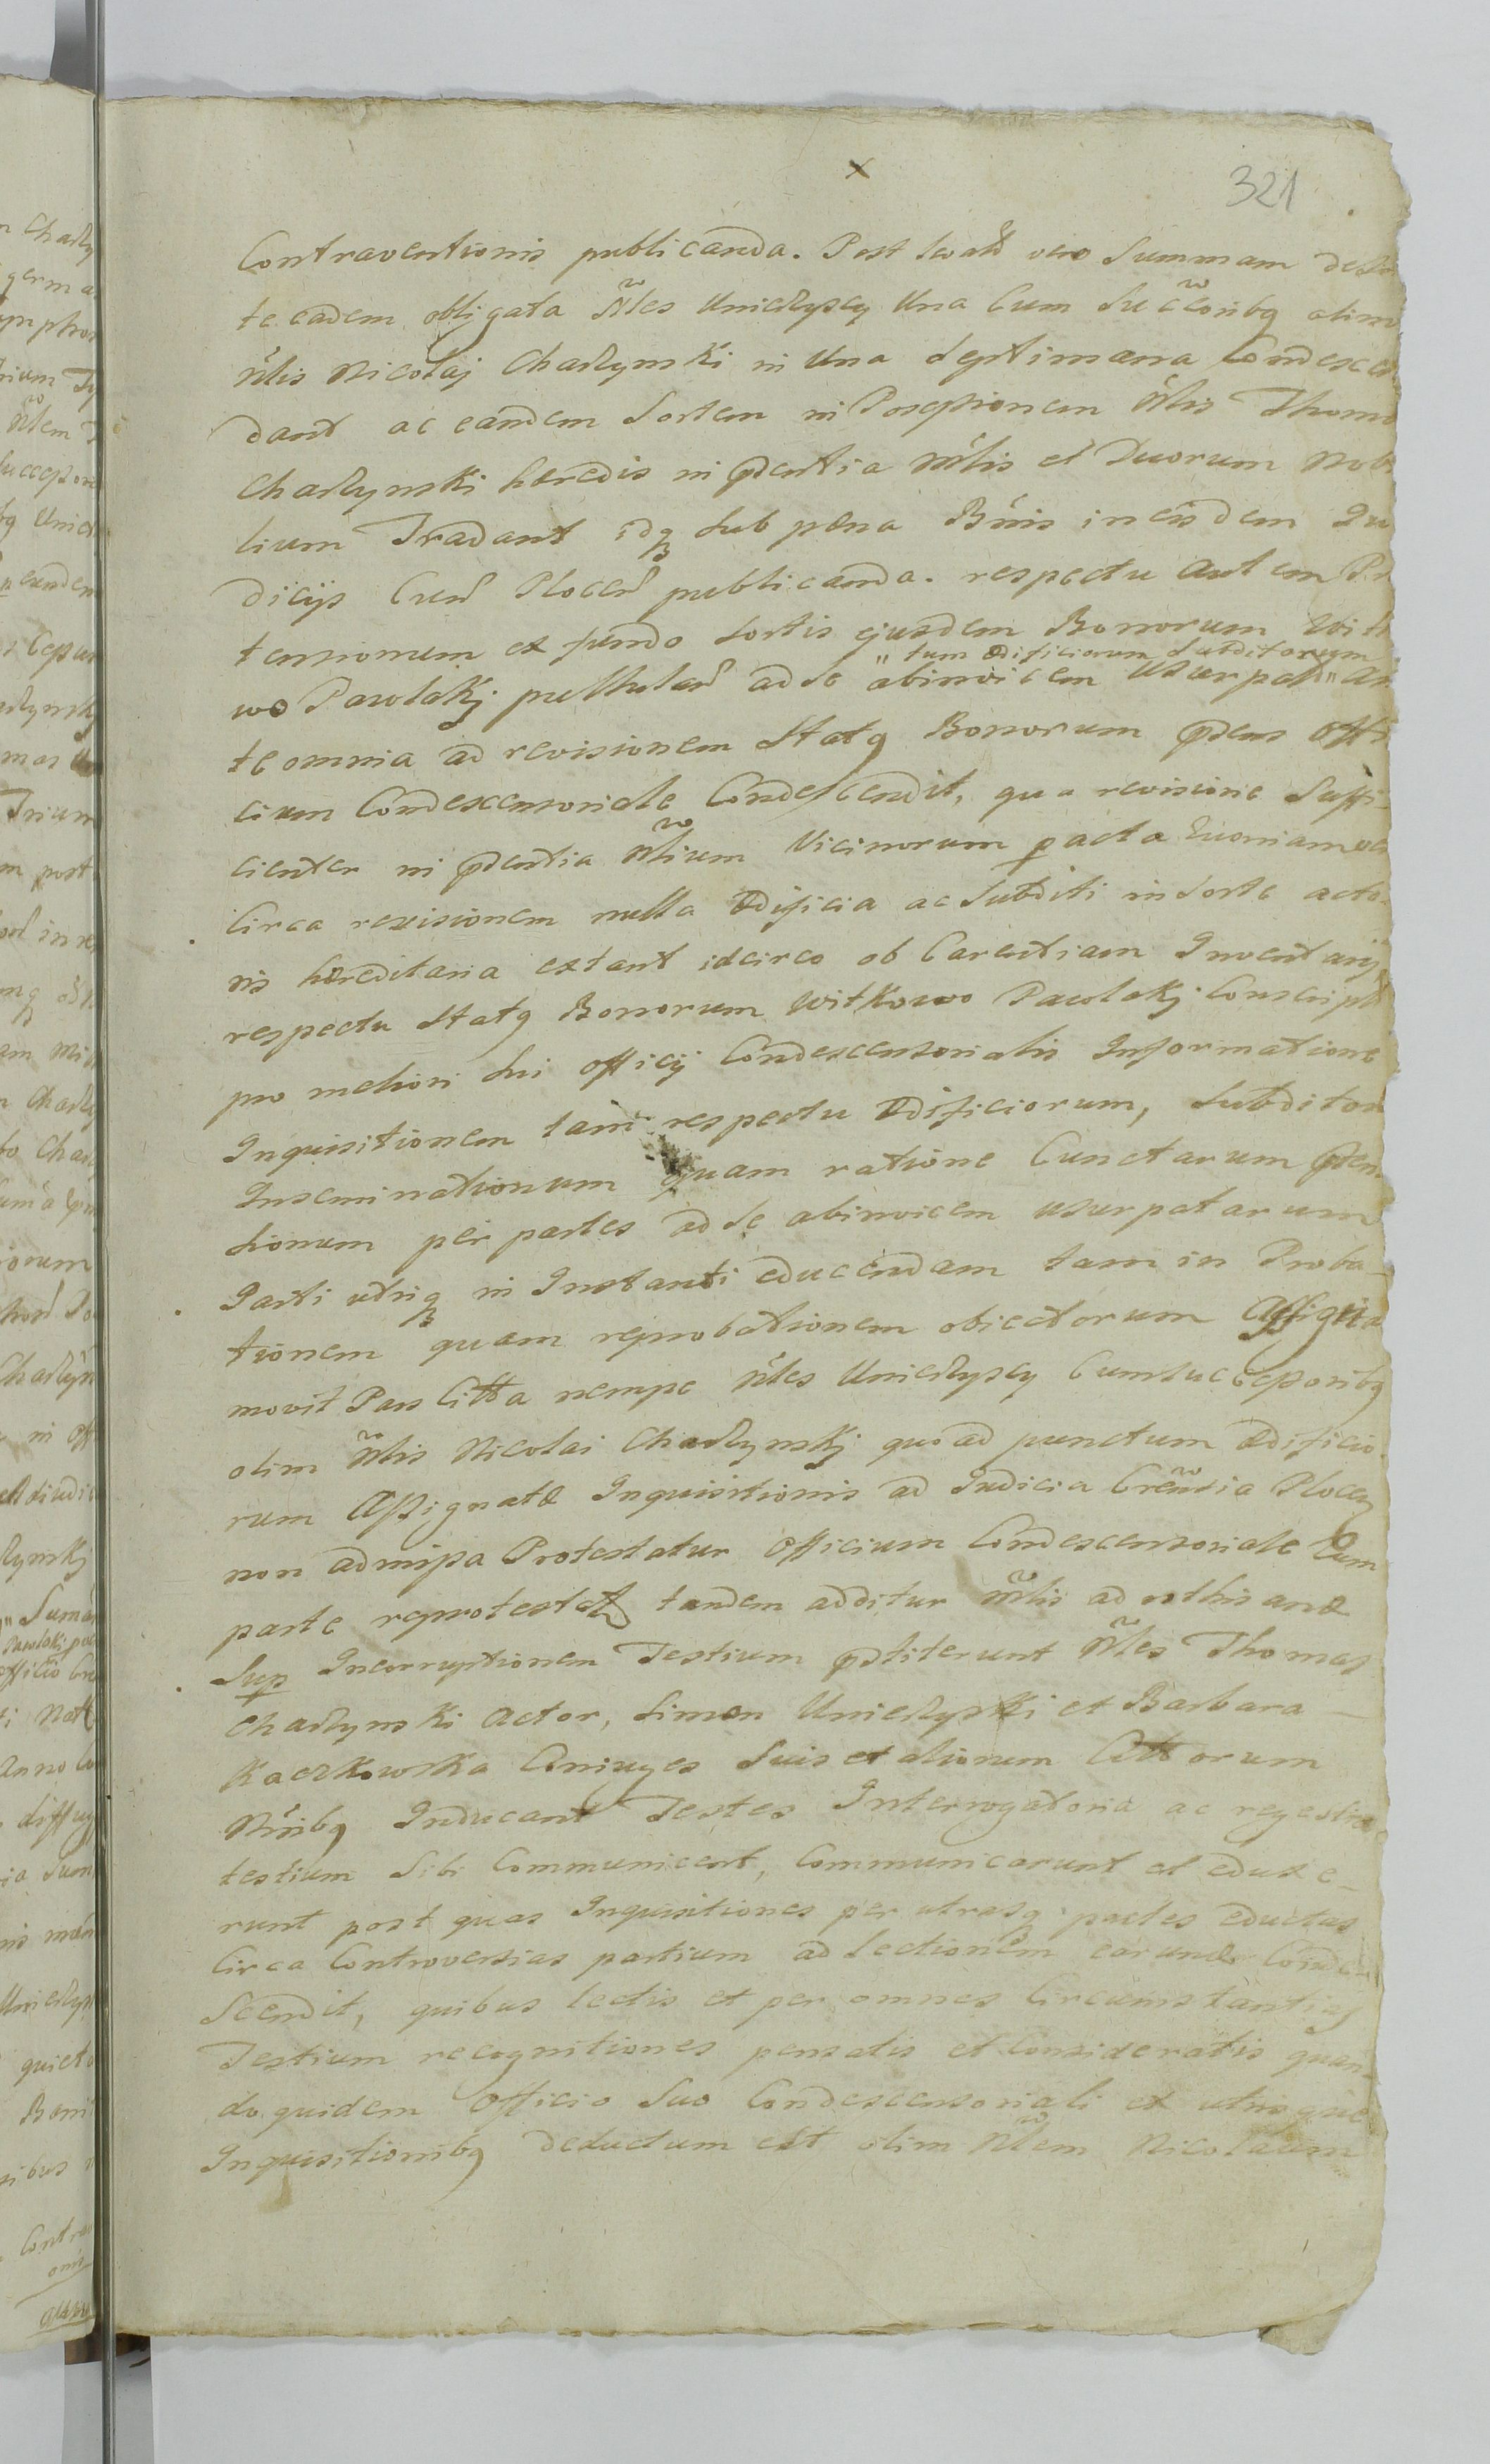 x
321
Contraventionis publicanda. Post levat̃ vero Summam de sor
te eadem obligata Ñles Uniedyscy Una Cum Succ̃oribq olim
Ñlis Nicolaj Chadzynski in Una septimana Condescen
dant ac eandem Sortem in Possessionem Ñlis Thomæ
Chadzynski hæredis in pñdentia Mñlis et Duorum Nobi
lium Tradant idq sub pæna Bñnis in eisdem Ju
dicijs Cren̄ Plocen̄ publicanda. respectu autem Præ
tensionum ex fundo Sortis ejusdem Bonorum Witk
„ tum ædificiorum Subditorum
wo Pawlaki pullulan̄ ad se abinvicem Usurpat̄ „ An
te omnia ad revisionem Statq Bonorum pñdens Offi
cium Condescensoriale Condescendit, qua revisione Suffi-
cienter in pñdentia Ñlium Vicinorum pacta Quoniam
Circa revisionem nulla ædificia ac Subditi in Sorte acto
ris hæreditaria extant idcirco ob Carentiam Inventarij
respectu Statq Bonorum Witkowo Pawlaki Conscript̄
pro meliori sui Officij Condescensorialis Informatione
Inquisitionem tam respectu Ædificiorum, Subditor
Inseminationum quam ratione Cunctarum pñten
sionum per partes ad se abinvicem usurpatarum
Parti utriq in Instanti educendam tam in Proba-
tionem quam reprobationem objectorum Assigna
movit Pars Citta nempe Ñles Uniedyscy Cum Successoribq
olim Ñlis Nicolai Chadzynskj quoad punctum ædificio
rum Assignatæ Inquisitionis ad Judicia Creñsia Plocen
non admissa Protestatur Officium Condescensoriale Cum
parte reprotestat̄ tandem additur Mñlis ad rothisandæ
Sup Incorruptionem Testium pñstiterunt Ñles Thomas
Chadzynski Actor, Simon Uniedyski et Barbara
Kaczkowska Coniuges Suis et aliorum Cittorum
Nñibq Inducant Testes Interrogatoria ac regestra
testium Sibi Communicent, Communicarunt et eduxe-
runt post quas Inquisitiones per utrasq partes eductas
Circa Controversias partium ad lectionem earundem Conde-
Scendit, quibus lectis et per omnes Circumstantias
Testium recognitiones pensatis et Consideratis quan-
do quidem Officio Suo Condescensoriali ex utrisque
Inquisitionibq deductum est olim Ñlem Nicolaum